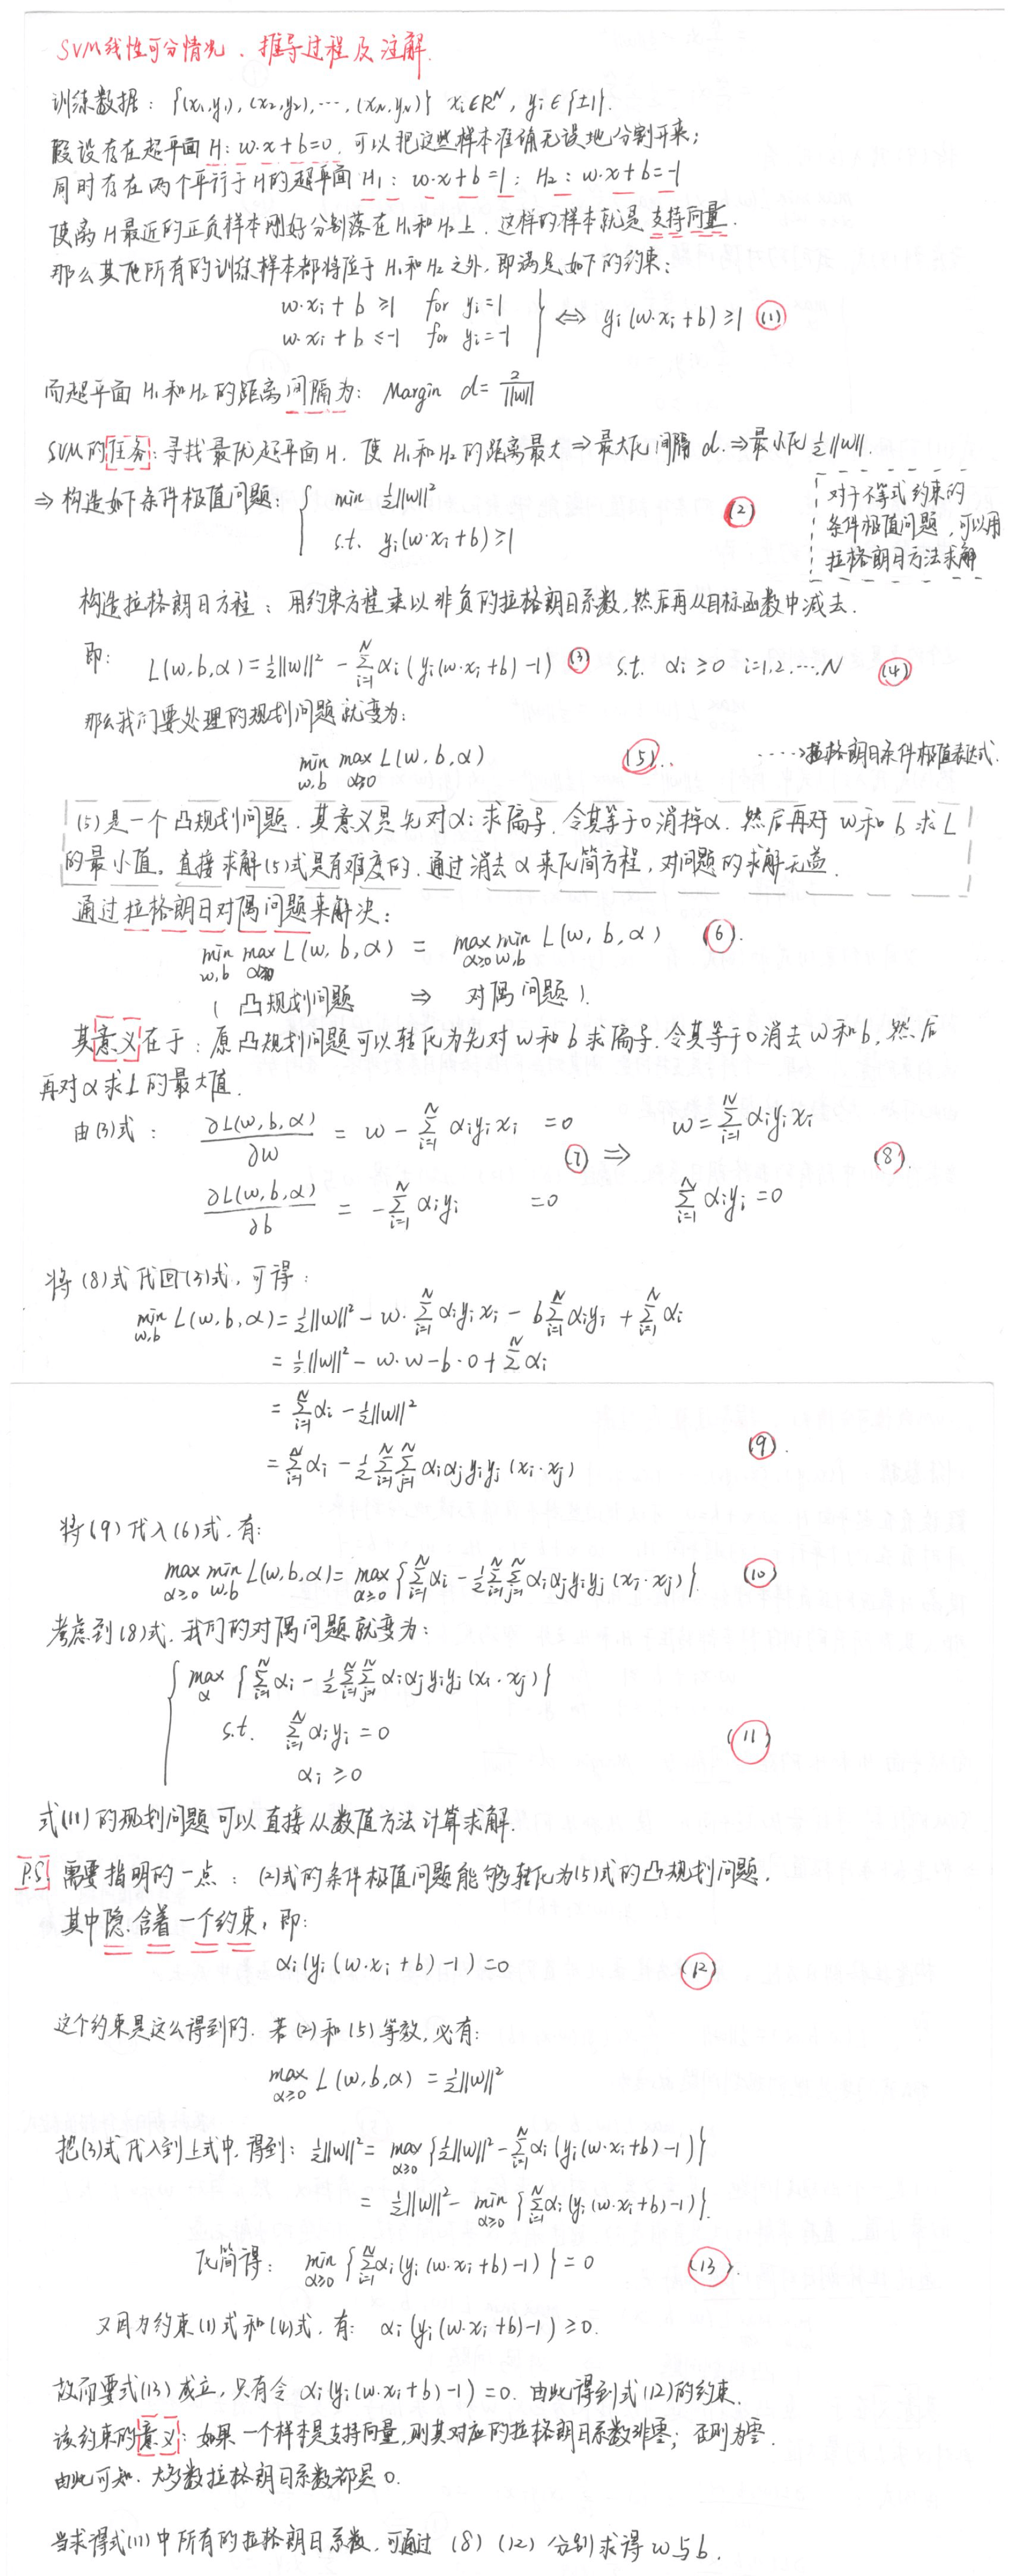 SVM线性可分情况、推导过程及注解.
训练数据: {(x₁,y₁), (x₂,y₂), ⋯, (x_N,y_N)} xᵢ∈R^N, yᵢ∈{±1}.
假设存在超平面 H: w·x+b=0, 可以把这些样本准确无误地分割开来;
同时存在两个平行于H的超平面 H₁: w·x+b=1; H₂: w·x+b=-1
使离H最近的正负样本刚好分别落在H₁和H₂上, 这样的样本就是支持向量.
那么其他所有的训练样本都将位于H₁和H₂之外, 即满足如下的约束:
w·xᵢ+b ≥1 for yᵢ=1
w·xᵢ+b ≤-1 for yᵢ=-1 } ⇔ yᵢ(w·xᵢ+b)≥1 (1)
而超平面H₁和H₂的距离间隔为: Margin d=2/||w||
SVM的任务: 寻找最优超平面H, 使H₁和H₂的距离最大⇒最大化间隔d.⇒最小化½||w||.
⇒ 构造如下条件极值问题: { min ½||w||² (2)
s.t. yᵢ(w·xᵢ+b)≥1
对于不等式约束的
条件极值问题, 可以用
拉格朗日方法求解
构造拉格朗日方程: 用约束方程乘以非负的拉格朗日系数, 然后再从目标函数中减去.
即: L(w,b,α)=½||w||² - Σ_{i=1}^N αᵢ(yᵢ(w·xᵢ+b)-1) (3) s.t. αᵢ≥0 i=1,2,⋯,N (4)
那么我们要处理的规划问题就变为:
min_{w,b} max_{α≥0} L(w,b,α) (5). ⋯→拉格朗日条件极值表达式.
(5)是一个凸规划问题. 其意义是先对αᵢ求偏导, 令其等于0消掉α, 然后再对w和b求L
的最小值。直接求解(5)式是有难度的, 通过消去α来化简方程, 对问题的求解无益.
通过拉格朗日对偶问题来解决:
min_{w,b} max_{α≥0} L(w,b,α) = max_{α≥0} min_{w,b} L(w,b,α) (6).
( 凸规划问题 ⇒ 对偶问题 ).
其意义在于: 原凸规划问题可以转化为先对w和b求偏导, 令其等于0消去w和b, 然后
再对α求L的最大值.
由(3)式: ∂L(w,b,α)/∂w = w - Σ_{i=1}^N αᵢyᵢxᵢ =0 w=Σ_{i=1}^N αᵢyᵢxᵢ
(7) ⇒ (8).
∂L(w,b,α)/∂b = -Σ_{i=1}^N αᵢyᵢ =0 Σ_{i=1}^N αᵢyᵢ=0
将(8)式代回(3)式, 可得:
min_{w,b} L(w,b,α)=½||w||² - w·Σ_{i=1}^N αᵢyᵢxᵢ - bΣ_{i=1}^N αᵢyᵢ + Σ_{i=1}^N αᵢ
= ½||w||² - w·w - b·0 + Σ^N αᵢ
= Σ_{i=1}^N αᵢ - ½||w||²
= Σ_{i=1}^N αᵢ - ½Σ_{i=1}^N Σ_{j=1}^N αᵢαⱼyᵢyⱼ(xᵢ·xⱼ) (9).
将(9)代入(6)式, 有:
max_{α≥0} min_{w,b} L(w,b,α)= max_{α≥0} {Σ_{i=1}^N αᵢ - ½Σ_{i=1}^N Σ_{j=1}^N αᵢαⱼyᵢyⱼ(xᵢ·xⱼ)}. (10)
考虑到(8)式, 我们的对偶问题就变为:
{ max_α {Σ_{i=1}^N αᵢ - ½Σ_{i=1}^N Σ_{j=1}^N αᵢαⱼyᵢyⱼ(xᵢ·xⱼ)}
s.t. Σ_{i=1}^N αᵢyᵢ=0 (11)
αᵢ≥0
式(11)的规划问题可以直接从数值方法计算求解.
P.S! 需要指明的一点: (2)式的条件极值问题能够转化为(5)式的凸规划问题,
其中隐含着一个约束, 即:
αᵢ(yᵢ(w·xᵢ+b)-1)=0 (12)
这个约束是这么得到的. 若(2)和(5)等效, 必有:
max_{α≥0} L(w,b,α)=½||w||²
把(3)式代入到上式中, 得到: ½||w||²= max_{α≥0} {½||w||²-Σ_{i=1}^N αᵢ(yᵢ(w·xᵢ+b)-1)}
= ½||w||²- min_{α≥0} {Σ_{i=1}^N αᵢ(yᵢ(w·xᵢ+b)-1)}.
化简得: min_{α≥0} {Σ_{i=1}^N αᵢ(yᵢ(w·xᵢ+b)-1)}=0 (13).
又因为约束(1)式和(4)式, 有: αᵢ(yᵢ(w·xᵢ+b)-1)≥0.
故而要式(13)成立, 只有令 αᵢ(yᵢ(w·xᵢ+b)-1)=0. 由此得到式(12)的约束.
该约束的意义: 如果一个样本是支持向量, 则其对应的拉格朗日系数非零; 否则为零.
由此可知, 大多数拉格朗日系数都是0.
当求得式(11)中所有的拉格朗日系数, 可通过(8)(12)分别求得w与b.